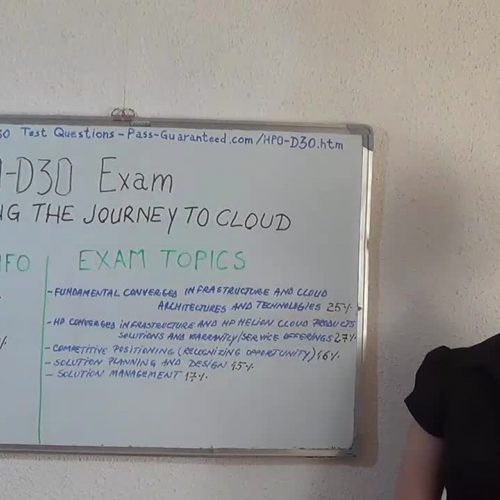 30 Test Questions - Pass-Guaranteed.com/HP0-D30.htm
-D30 Exam
NG THE JOURNEY TO CLOUD
NFO
EXAM TOPICS
- FUNDAMENTAL CONVERGED INFRASTRUCTURE AND CLOUD
ARCHITECTURES AND TECHNOLOGIES 25%
- HP CONVERGED INFRASTRUCTURE AND HP HELION CLOUD PRODUCTS
SOLUTIONS AND WARRANTY/SERVICE OFFERINGS 27%
%
- COMPETITIVE POSITIONING (RECOGNIZING OPPORTUNITY) 16%
- SOLUTION PLANNING AND DESIGN 15%
- SOLUTION MANAGEMENT 17%